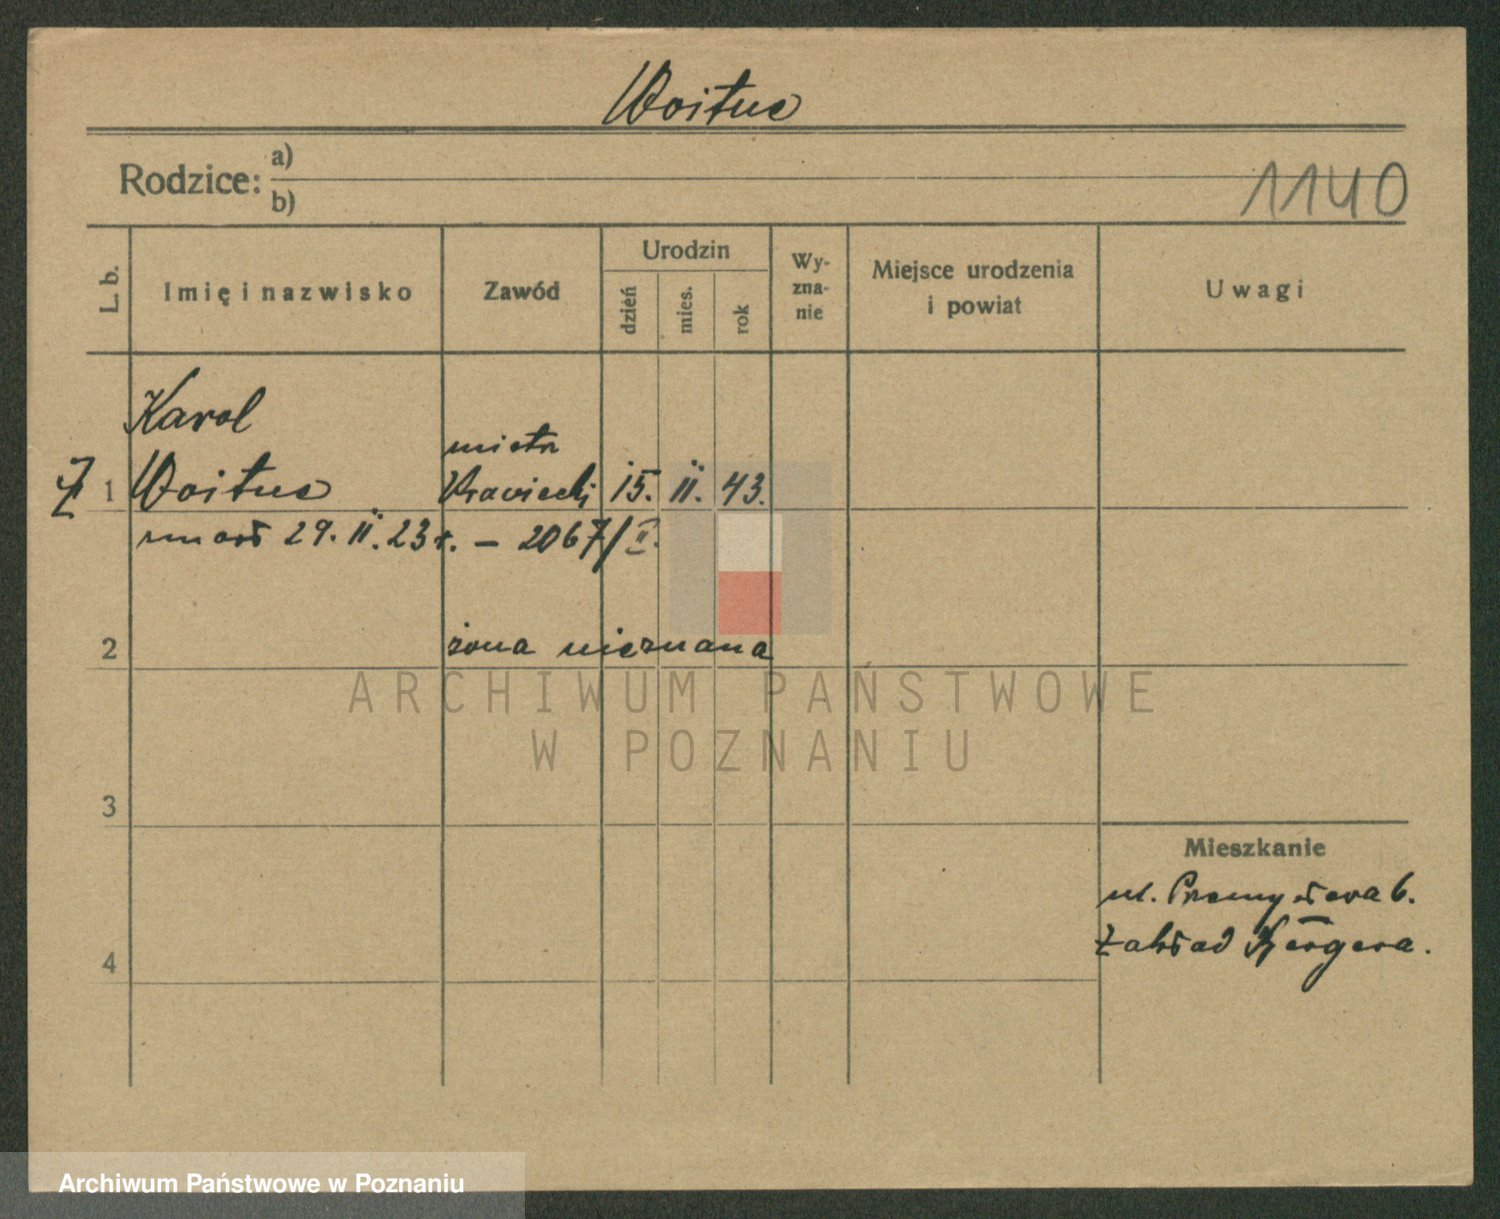 Woituc
Rodzice: a)
b)
1140
L. b.
Imię i nazwisko
Zawód
Urodzin
dzień
mies.
rok
Wy-
zna-
nie
Miejsce urodzenia
i powiat
Uwagi
Karol
1 Woituc
mistrz
krawiecki 15. II. 43.
umarł 29. II. 23 r. – 2067/II.
2
żona nieznana
ARCHIWUM PAŃSTWOWE
W POZNANIU
3
Mieszkanie
ul. Przemysłowa 6.
Zakład
4
Archiwum Państwowe w Poznaniu